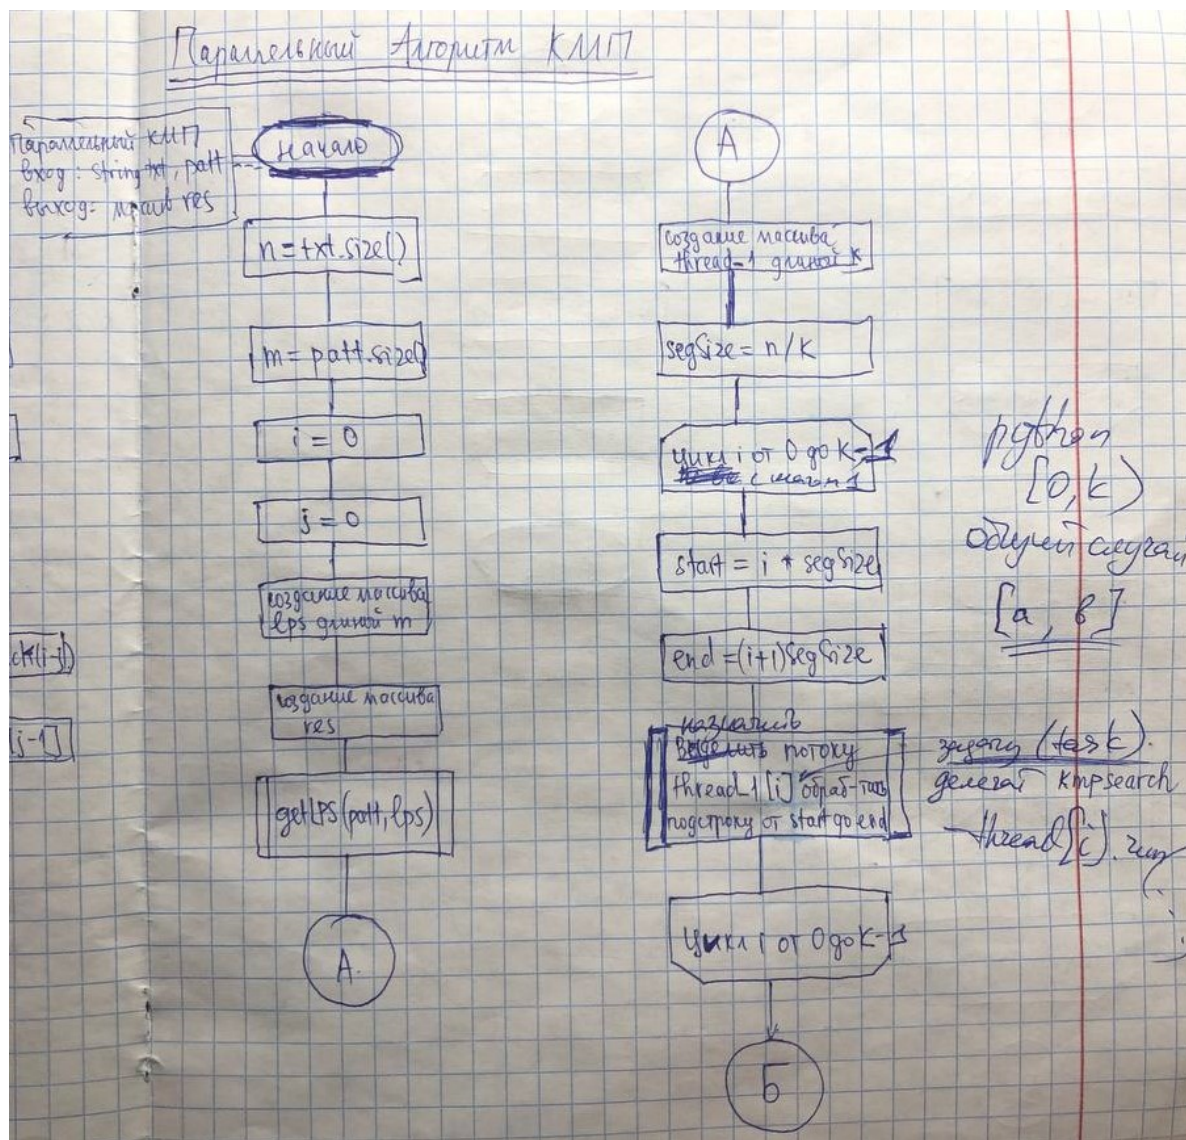 Параллельный Алгоритм КМП
Параллельный КМП
вход: string txt, patt
выход: массив res
начало
n = txt.size()
m = patt.size()
i = 0
j = 0
создание массива
lps длиной m
создание массива
res
getLPS(patt, lps)
А.
А
создание массива
thread_1 длиной k
segSize = n/k
цикл i от 0 до k-1
с шагом 1
start = i * segSize
end = (i+1)segSize
назначить
потоку
thread_1[i] обраб-тать
подстроку от start до end
Цикл i от 0 до k-1
Б
python
[0, k)
общий случай
[a, b]
задачу (task).
делегат kmpsearch
thread[i].
ck(i-j)
[j-1]